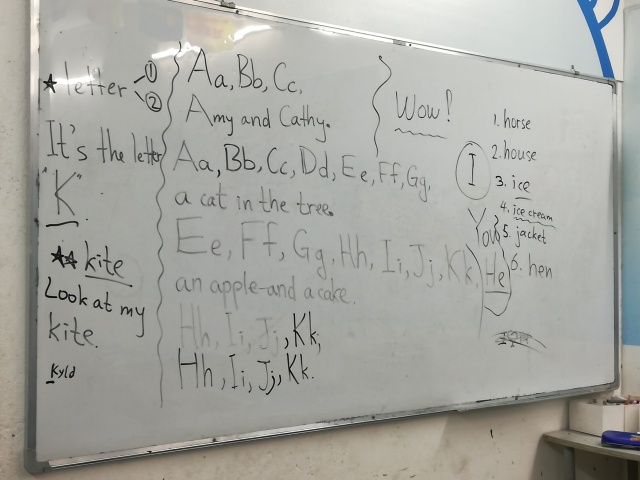 ★ letter ① ②
It's the letter
"K".
★★ kite
Look at my
kite.
Kyld
Aa, Bb, Cc,
Amy and Cathy.
Aa, Bb, Cc, Dd, Ee, Ff, Gg,
a cat in the tree.
Ee, Ff, Gg, Hh, Ii, Jj, Kk,
an apple and a cake.
Hh, Ii, Jj, Kk,
Hh, Ii, Jj, Kk.
Wow!
I
You
He
1. horse
2. house
3. ice
4. ice cream
5. jacket
6. hen